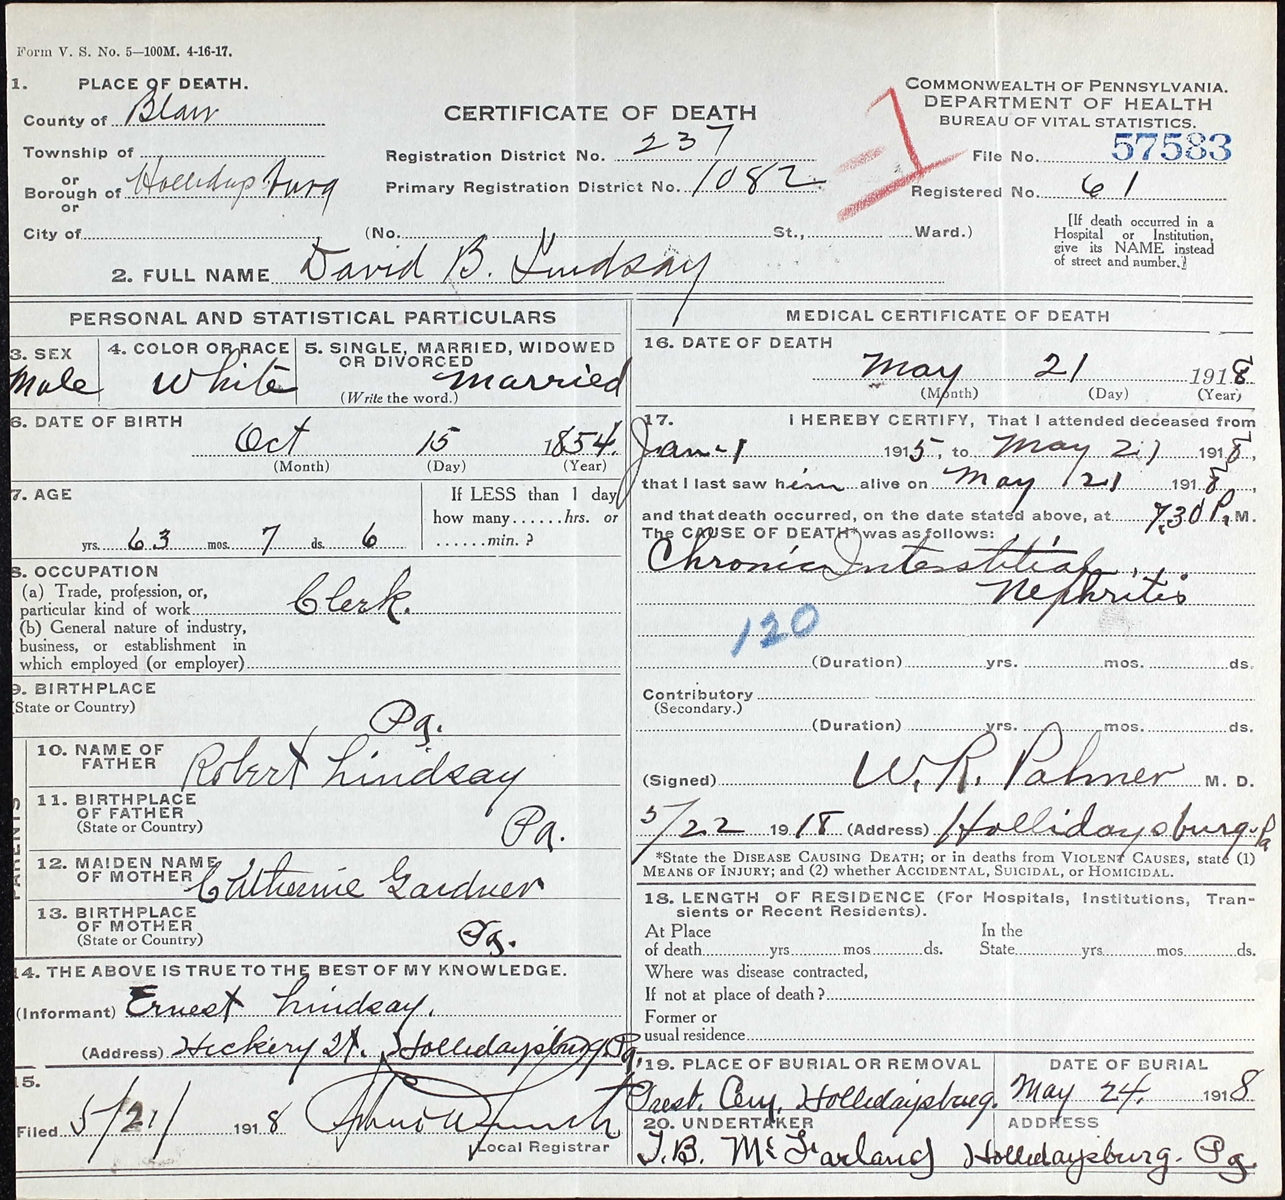 Form V. S. No. 5—100M. 4-16-17.
1. PLACE OF DEATH.
County of Blair
Township of
or
Borough of Hollidaysburg
or
City of
CERTIFICATE OF DEATH
Registration District No. 237
Primary Registration District No. 1082
(No. St., Ward.)
COMMONWEALTH OF PENNSYLVANIA.
DEPARTMENT OF HEALTH
BUREAU OF VITAL STATISTICS.
File No. 57583
Registered No. 61
[If death occurred in a
Hospital or Institution,
give its NAME instead
of street and number.]
2. FULL NAME David B. Lindsay
PERSONAL AND STATISTICAL PARTICULARS
3. SEX
Male
4. COLOR OR RACE
White
5. SINGLE, MARRIED, WIDOWED
OR DIVORCED
married
(Write the word.)
6. DATE OF BIRTH
Oct 15 1854.
(Month) (Day) (Year)
7. AGE
yrs. 63 mos. 7 ds. 6
If LESS than 1 day
how many......hrs. or
......min.?
8. OCCUPATION
(a) Trade, profession, or,
particular kind of work Clerk.
(b) General nature of industry,
business, or establishment in
which employed (or employer)
9. BIRTHPLACE
(State or Country)
Pa.
PARENTS
10. NAME OF
FATHER Robert Lindsay
11. BIRTHPLACE
OF FATHER
(State or Country) Pa.
12. MAIDEN NAME
OF MOTHER Catherine Gardner
13. BIRTHPLACE
OF MOTHER
(State or Country) Pa.
14. THE ABOVE IS TRUE TO THE BEST OF MY KNOWLEDGE.
(Informant) Ernest Lindsay.
(Address) Hickery St. Hollidaysburg Pa.
15.
Filed 5/21/ 1918
Local Registrar
MEDICAL CERTIFICATE OF DEATH
16. DATE OF DEATH
May 21 1918
(Month) (Day) (Year)
17. I HEREBY CERTIFY, That I attended deceased from
Jan-1 1915, to May 21 1918,
that I last saw him alive on May 21 1918,
and that death occurred, on the date stated above, at 7.30 P. M.
The CAUSE OF DEATH* was as follows:
Chronic Interstitial
Nephritis
120
(Duration) yrs. mos. ds.
Contributory
(Secondary.)
(Duration) yrs. mos. ds.
(Signed) W. R. Palmer M. D.
5/22 1918 (Address) Hollidaysburg, Pa
*State the DISEASE CAUSING DEATH; or in deaths from VIOLENT CAUSES, state (1)
MEANS OF INJURY; and (2) whether ACCIDENTAL, SUICIDAL, or HOMICIDAL.
18. LENGTH OF RESIDENCE (For Hospitals, Institutions, Tran-
sients or Recent Residents).
At Place In the
of death yrs. mos. ds. State yrs. mos. ds.
Where was disease contracted,
If not at place of death?
Former or
usual residence
19. PLACE OF BURIAL OR REMOVAL
Prest. Cem. Hollidaysburg.
DATE OF BURIAL
May 24. 1918
20. UNDERTAKER
T. B. McFarland
ADDRESS
Hollidaysburg. Pa.